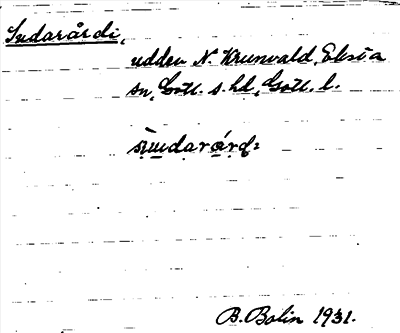 Sudarårdi,
udden N. Krunvald, Eksta
sn, Gotl. s. hd, Gotl. l.
B. Bolin 1931.